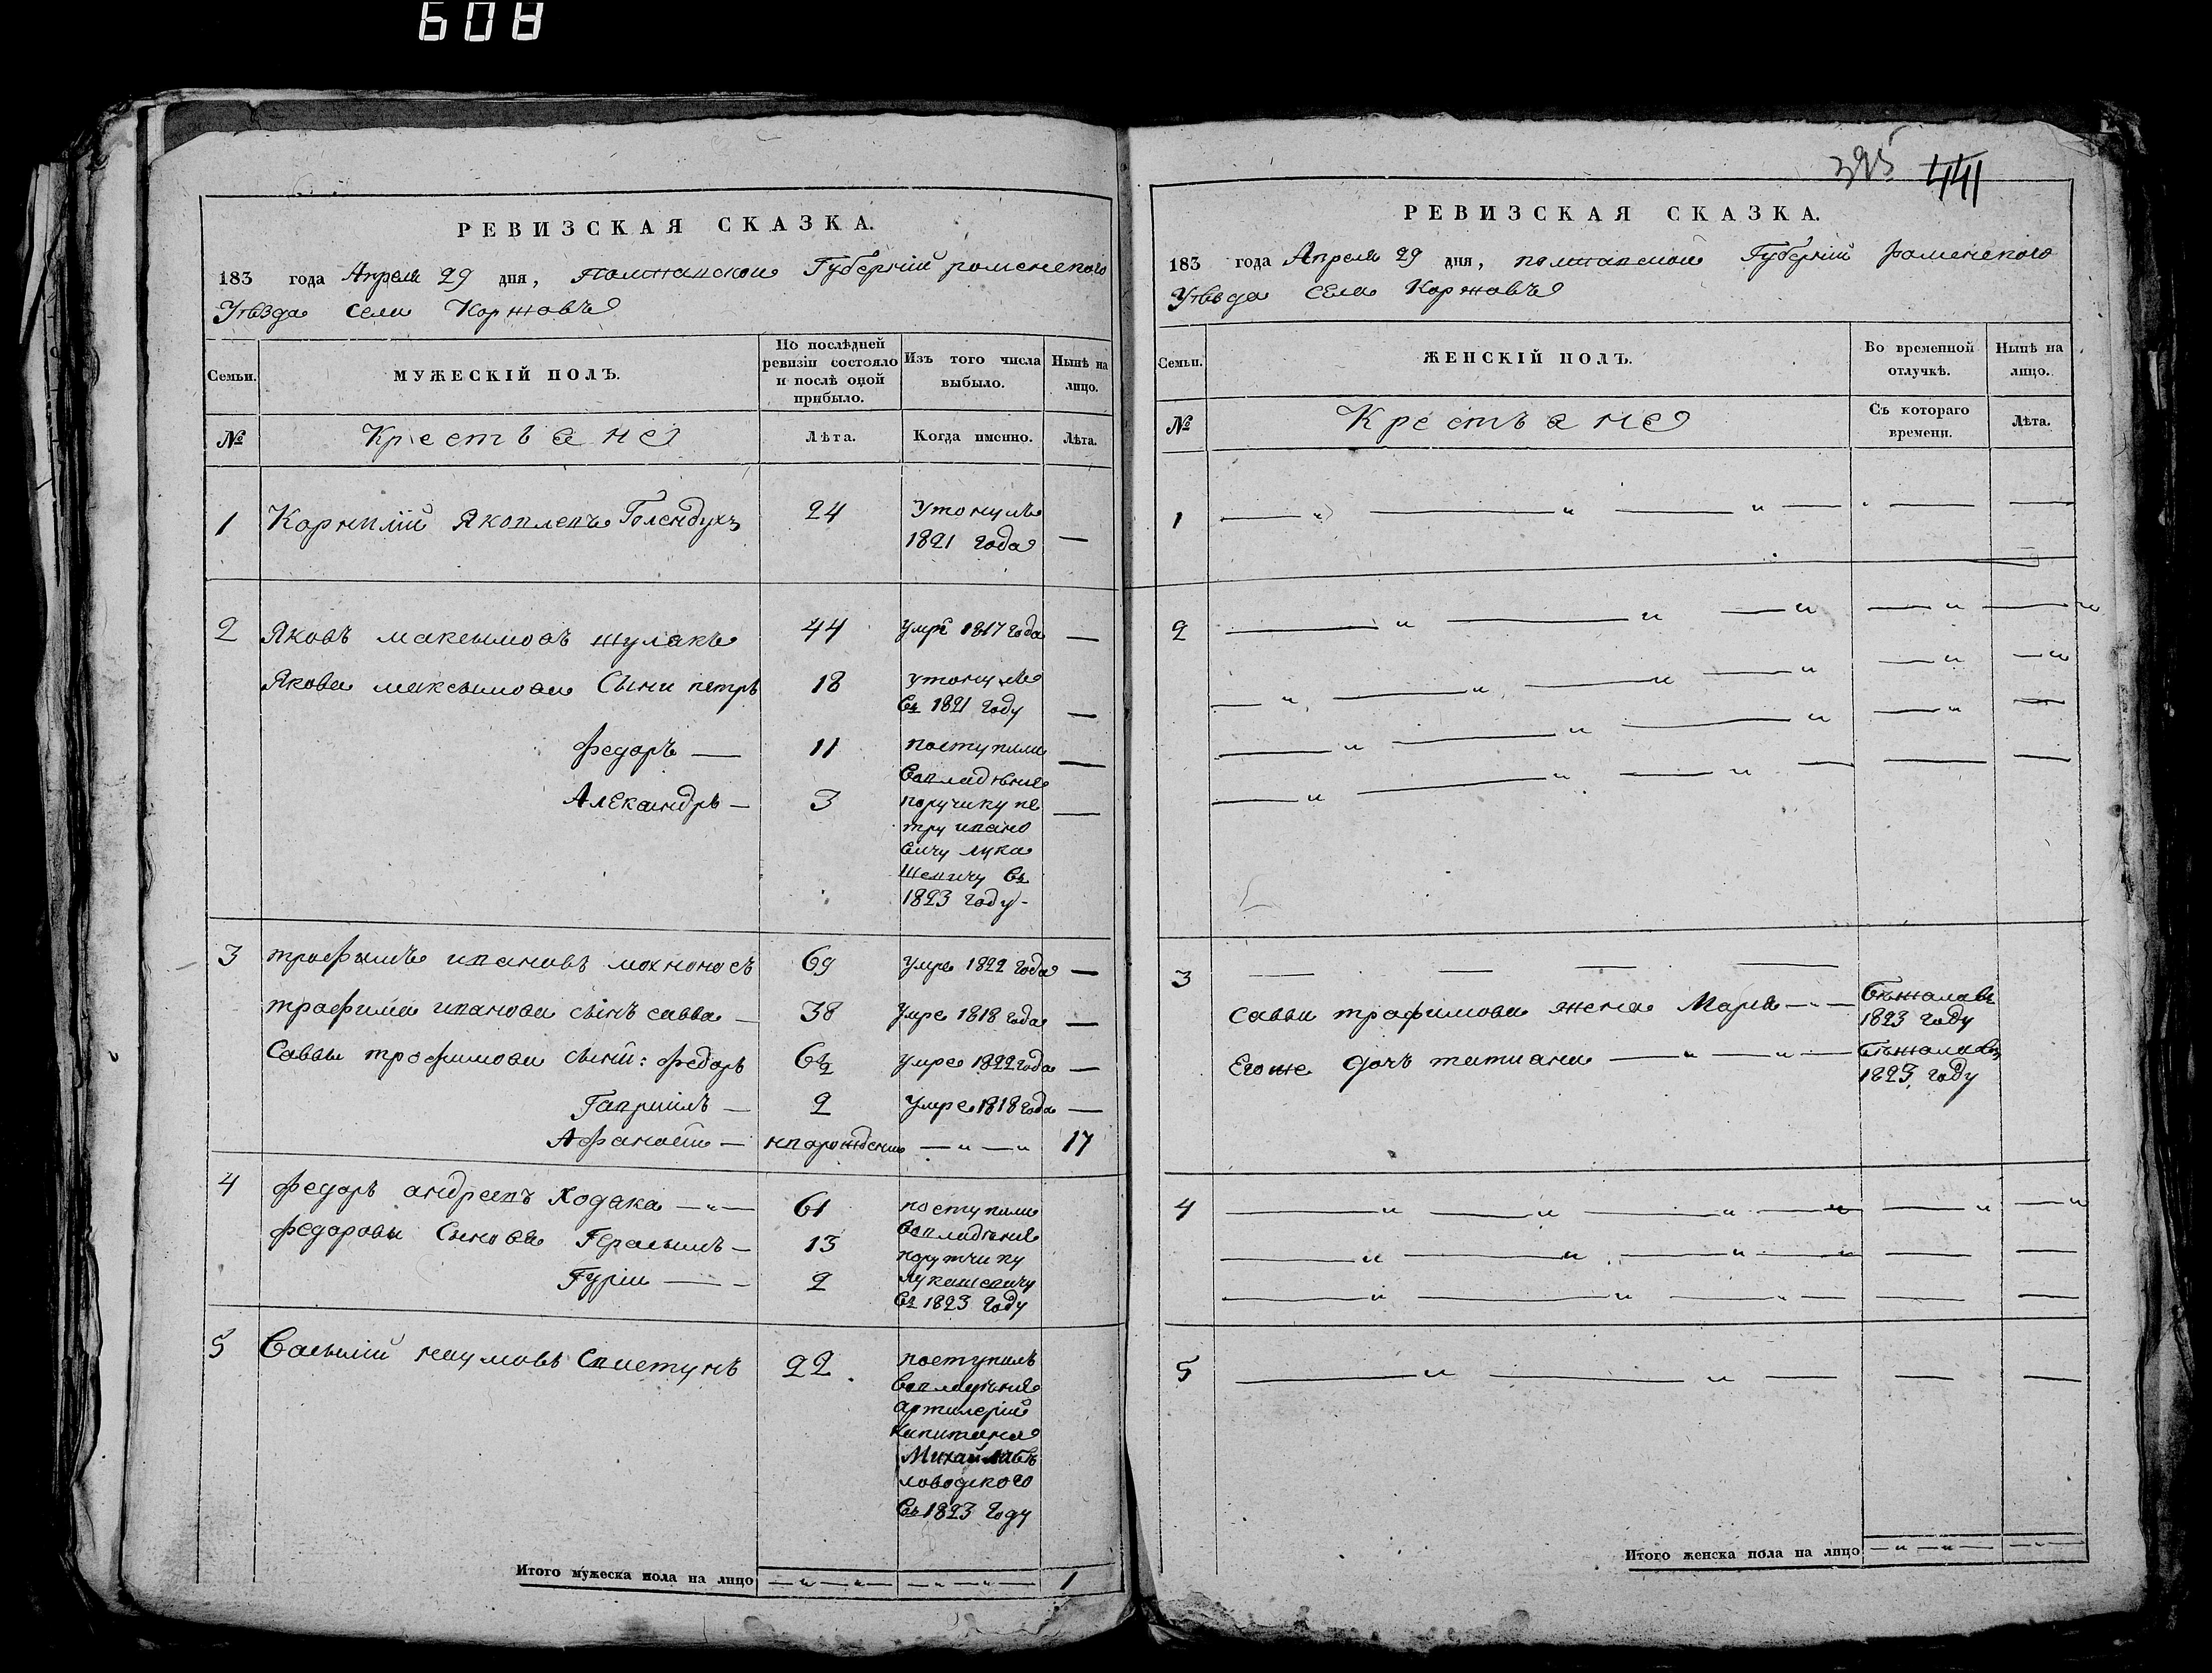 608
РЕВИЗСКАЯ СКАЗКА.
183 года Апреля 29 дня, полтавской Губерній роменского
Уѣзда села Коржовъ
Семьи. МУЖЕСКІЙ ПОЛЪ. По послѣдней ревизіи состояло и послѣ оной прибыло. Изъ того числа выбыло. Нынѣ на лицо.
№ Крестьяне Лѣта. Когда именно. Лѣта.
1 Корнилій Яковлевъ Голендухъ 24 Утонулъ
1821 года —
2 Яковъ максымовъ шулякъ 44 умре 1817 года —
Якова максымова Сыни петръ 18 утонулъ
въ 1821 году —
федоръ — 11 поступили —
вовладѣніе
Александръ — 3 поручику пе —
тру ивано
вичу лука
шевичу въ
1823 году -
3 трофымъ ивановъ мохноносъ 69 умре 1822 года —
трофима иванова сынъ савва — 38 умре 1818 года —
Саввы трофимова сыни: федоръ 6½ умре 1822 года —
Гавриилъ — 2 умре 1818 года —
Афанасій — нворожденъ — „ — „ 17
4 федоръ андреевъ Ходака — „ — 61 поступили
федоровы Сынова Герасымъ — 13 вовладѣніе
поручику
Гурій — — 2 Лукашевичу
въ 1823 году
5 Васылій наумовъ Свистунъ 22 поступилъ
вовладѣніе
артилерій
капитана
Михайла бѣ
ловодского
въ 1823 году
Итого мужеска пола на лицо — „ — „ — — „ — „ — 1
395 441
РЕВИЗСКАЯ СКАЗКА.
183 года Апреля 29 дня, полтавской Губерній роменского
Уѣзда села Коржовъ
Семьи. ЖЕНСКІЙ ПОЛЪ. Во временной отлучкѣ. Нынѣ на лицо.
№ Крестьяне Съ котораго времени. Лѣта.
1
2
3
Саввы трофимова жена Марія — „ — бѣжала въ
1823 году
Егоже дочь татиана — „ — „ — бѣжала въ
1823 году
4
5
Итого женска пола на лицо — „ — „ — — „ —